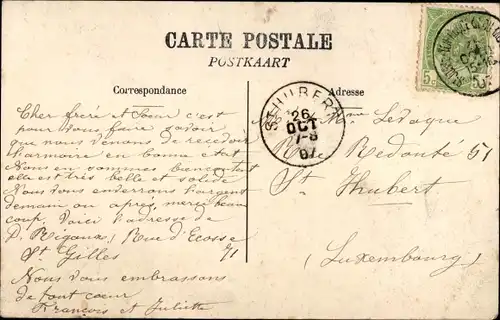 CARTE POSTALE
POSTKAART
Correspondance
Adresse
5 C
ST HUBERT
26
OCT
7-8
07
Cher frère et Sœur c'est
pour vous faire savoir
que nous venons de recevoir
l'armoire en bonne état
Nous en sommes bien content
elle est très belle et solide
Nous vous enverrons l'argent
demain ou après, merci beau
coup, voici l'adresse de
D. Rue d'Ecosse
St Gilles 71
Nous vous embrassons
de tout cœur
François et Juliette
Ledaque
Rue Redouté 51
St Hubert
(Luxembourg)